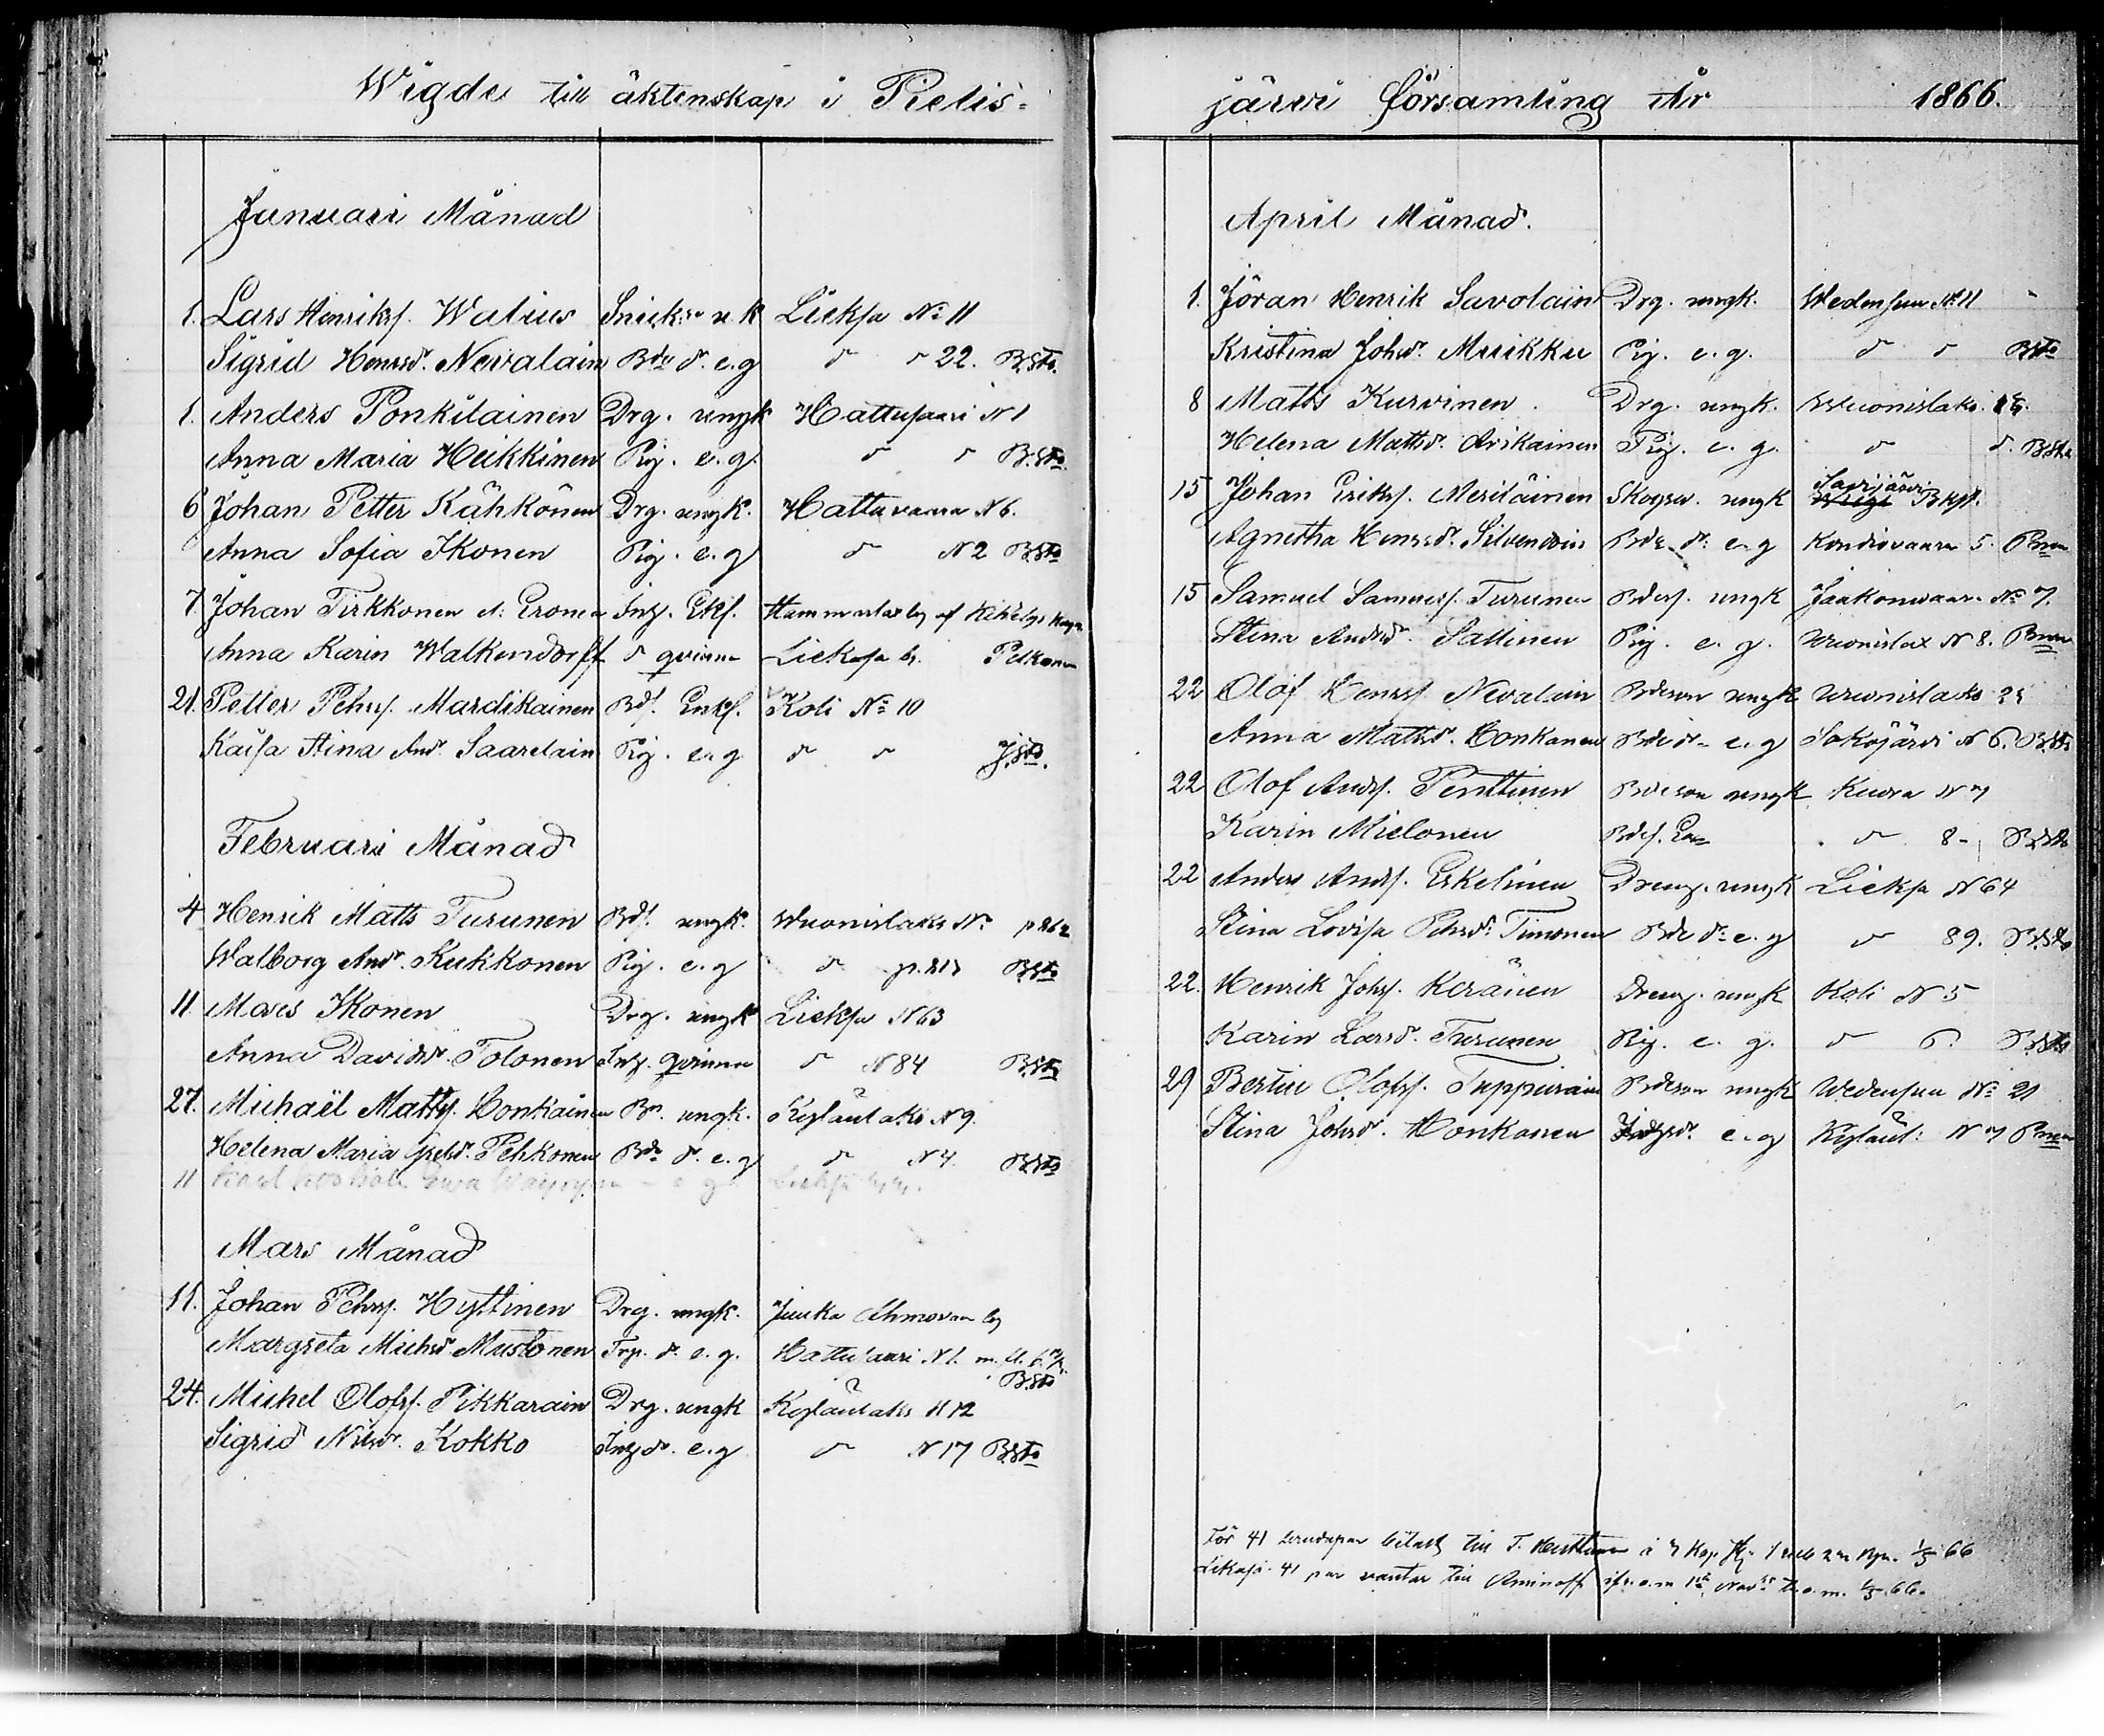 Wigde till äktenskap i Pielis-
Januari Månad
1. Lars Henrikss. Walius Snick: u. k Lieksa No 11
Sigrid Henrsdr. Nevalain Bde dr. e. g dr 22. B.sto.
1. Anders Ponkilainen Drg. ungk Hattusaari N 1
Anna Maria Heikkinen Pig. e. g. dr dr B.sto.
6 Johan Petter Kähkönen Drg. ungk. Hattuvaara N 6.
Anna Sofia Ikonen Pig. e. g dr N 2 B.sto
7. Johan Tirkkonen Inh. Ekl. Hammaslax by af
Anna Karin Walkendorff dr qvinna Lieksa by. Pelkonen
21. Petter Pehrs. Mardikainen Bds. Enkl. Koli No 10
Kaisa Stina Andr. Saarelain Pig. e. g dr dr J.sto.
Februari Månad
4. Henrik Matts Turunen Bds. ungk. Wuonislaks No p 262
Walborg Andr. Kukkonen Pig. e. g dr p. 213 B.sto
11. Moses Ikonen Drg. ungk Lieksa N 63
Anna Davidsdr. Tolonen Inh. qvinna dr N 84 B.sto
27. Michaël Matts. Honkainen Bn. ungk. Kylänlaks N 9.
Helena Maria Grelsdr. Pehkonen Bde dr. e. g dr N 4. B.sto
11
Mars Månad
11. Johan Pehrs. Hyttinen Drg. ungk. Juuka Ahmovaara by
Margreta Michsdr. Mustonen Trp. dr. e. g. Hattusaari N 1.
B.sto
24. Michel Olofss. Pikkarain Drg. ungk Kylänlaks N 12
Sigrid Nilsdr. Kokko Inh. dr. e. g dr N 17 B.sto
järvi församling År 1866.
April Månad.
1. Jöran Henrik Savolain Drg. ungk. Wedensuu No 11
Kristina Johsdr. Muikku Pig. e. g. dr dr B.sto
8 Matts Kurvinen. Drg. ungk. Wuonislaks
Helena Mattsdr. Arikainen Pig. e. g. dr dr. B.sto
15 Johan Eriks. Meriläinen Skogsv. ungk Savijärvi Bkst.
Agnetha Henrsdr. Silvenoin Bde. dr. e. g Kondiovaara 5. Pnen
15 Samuel Samuels. Turunen Bdes. ungk Jaakonvaara No 7.
Stina Andrsdr. Sallinen Pig. e. g. Wuonislax N 8. Pnen
22 Olof Henrs. Nevalain Bdeson ungk Wuonislaks 25
Anna Mattsdr. Honkanen Bde dr e. g Sokojärvi N 6. B.sto
22 Olof Andrs. Penttinen Bdeson ungk Kuora N 7
Karin Mielonen Bdes. Enk dr 8 - B.sto
22 Anders Andrs. Eskelinen Dreng. ungk Lieksa N 64
Stina Lovisa Pehrsdr. Timonen Bde dr. e. g dr 89. B.sto
22. Henrik Johs. Keränen Dreng. ungk Koli N 5
Karin Larsdr. Turunen Pig. e. g. dr 6. B.sto
29 Bertil Olofs. Tuppurain Bdeson ungk Wedensuu No 21
Stina Johsdr. Honkanen Inhdr. e. g Kylänl: N 7 Pnen
För 41 brudpar
41 par Aminoff